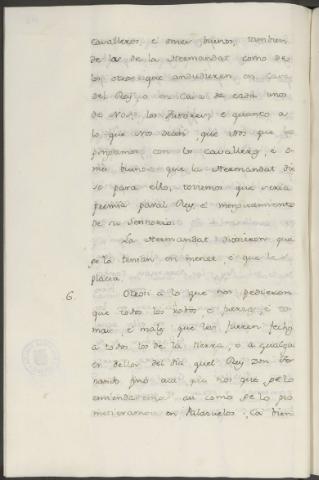 cavalleros, e omes buenos, tambien
de los de la Hermandat como de
los otros que andudieren en casa
del Rey, o en casa de cada unos
de Nos, los Tutores; e quanto a
lo que Nos dean, que Nos que lo
pongamos con los cavalleros, e o-
mes buenos que la Hermandat die-
se para ello, tenemos que seria
premia paral Rey, e menguamiento
de su sennorio.
La Hermandat dixieron que
se lo tenian en merced, e que les
placia.
6. Otrosi a lo que nos pedieron
que todos los robos, e fuerzas, e to-
mas, e males que les fueron fechos
a todos los de la tierra, o a qualquier
dellos del dia quel Rey Don Fer-
nando finó aca por nos que se lo
emendasemos asi como se lo pro-
metieramos en Palazuelos; Ca bien